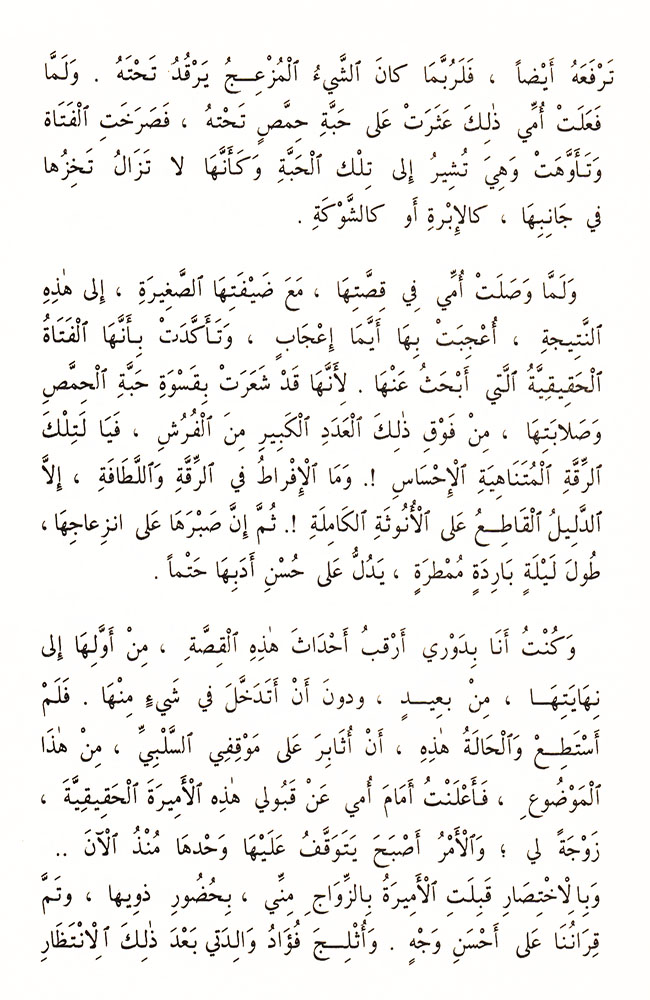 تَرْفَعَهُ أَيْضاً ، فَلَرُبَّمَا كانَ ٱلشَّيءُ ٱلْمُزْعِـجُ يَرْقُدُ تَحْتَهُ . وَلَمَّا
فَعَلَتْ أُمِّي ذٰلِكَ عَثَرَتْ عَلى حَبَّةِ حِمَّصٍ تَحْتَهُ ، فَصَرَخَتِ ٱلْفَتَاة
وَتَـأَوَّهَتْ وَهِيَ تُشِيرُ إِلى تِلْكَ ٱلْحَبَّةِ وَكَأَنَّهَا لا تَزَالُ تَخِزُها
في جَانِبِهَا ، كالإِبْرةِ أَو كالشَّوْكَةِ .
وَلَمَّا وَصَلَتْ أُمِّي فِي قِصَّتِهَا ، مَعَ ضَيْفَتِهَا ٱلصَّغِيرَةِ ، إِلى هٰذِهِ
ٱلنَّتِيجةِ ، أُعْجِبَتْ بِهَا أَيَّمَا إِعْجَابٍ ، وَتَـأَكَّدَتْ بِـأَنَّهَا ٱلْفَتَاةُ
ٱلْحَقِيقِيَّةُ ٱلَّتي أَبْحَثُ عَنْهَا . لِأَنَّهَا قَدْ شَعَرَتْ بِقَسْوَةِ حَبَّةِ ٱلْحِمَّصِ
وَصَلابَتِهَا ، مِنْ فَوْقِ ذٰلِكَ ٱلْعَدَدِ ٱلْكَبِيرِ مِنَ ٱلْفُرُشِ ، فَيَا لَتِلْكَ
ٱلرِّقَّةِ ٱلْمُتَنَاهِيَةِ ٱلْإِحْسَاسِ !. وَمَا ٱلْإِفْراطُ في ٱلرِّقَّةِ وَٱللَّطَافَةِ ، إِلاَّ
ٱلدَّلِيلُ ٱلْقَاطِـعُ عَلى ٱلْأُنُوثَةِ ٱلكَامِلَةِ !. ثُمَّ إِنَّ صَبْرَهَا عَلى انزِعاجِهَا،
طُولَ لَيْلَةٍ بَارِدَةٍ مُمْطرَةٍ ، يَدُلُّ عَلى حُسْنِ أَدَبِهَا حَتْماً .
وَكُنْتُ أَنَا بِدَوْرِي أَرْقبُ أَحْدَاثَ هٰذِهِ ٱلْقِصَّةِ ، مِنْ أَوَّلِهَا إِلى
نِهَايَتِهَـا ، مِنْ بعِيـدٍ ، ودونَ أَنْ أَتَدَخَّلَ في شَيءٍ مِنْهَا . فَلَمْ
أَسْتَطِـعْ وَٱلْحَالَةُ هٰذِهِ ، أَنْ أُثَابِرَ عَلى مَوْقِفِي ٱلسَّلْبِيِّ ، مِنْ هٰذَا
ٱلْمَوْضُوعِ ، فَـأَعْلَنْتُ أَمَامَ أُمي عَنْ قَبُولي هٰذِهِ ٱلْأَمِيرَةَ ٱلْحَقِيقِيَّةَ ،
زَوْجَةً لي ؛ وَٱلْأَمْرُ أَصْبَحَ يَتَوَقَّفُ عَلَيْهَا وَحْدَها مُنْذُ ٱلْآنَ ..
وَبِٱلِاخْتِصَارِ قَبِلَتِ ٱلْأَمِيرَةُ بِالزِّوَاجِ مِنِّي ، بِحُضُورِ ذوِيها ، وَتَمَّ
قِرَانُنَا عَلى أَحْسَنِ وَجْهٍ . وَأُثْلِـجَ فُؤَادُ وَالِدَتي بَعْدَ ذٰلِكَ ٱلِانْتَظَارِ